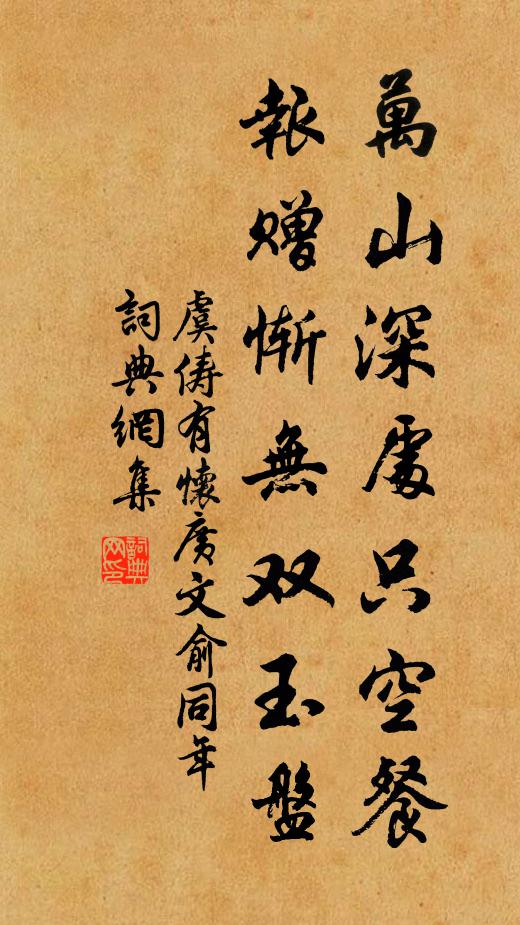 萬山深處只空餐
報贈慚無双玉盤
虞儔有懷廣文俞同年
詞典網集
詞典网印